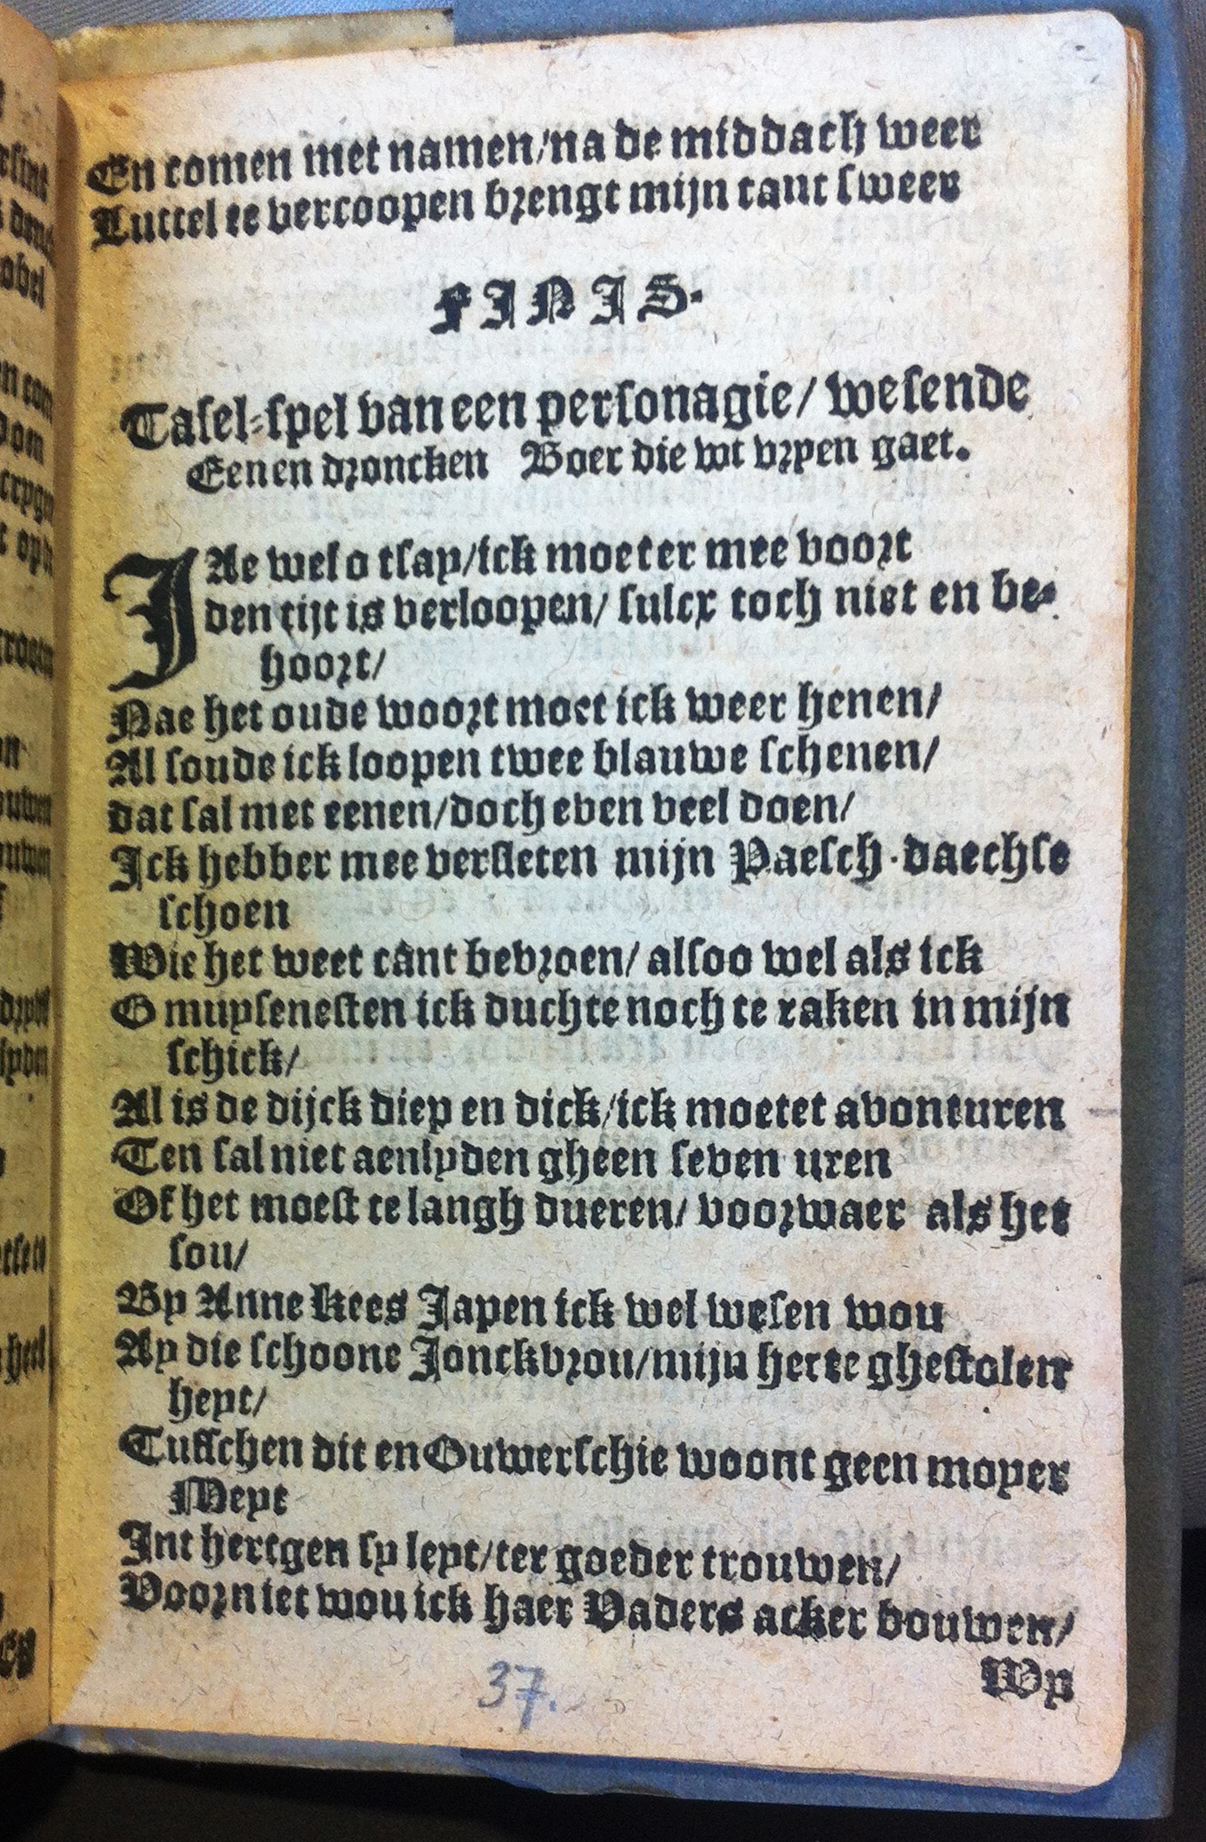 En comen met namen/na de middach weer
Luttel te vercoopen brengt mijn cant sweer
FINIS.
Tafel-spel van een personagie/ wesende
Een en droncken Boer die wt vryen gaet.
IAe wel o tsay/ick moet er mee voort
den tijt is verloopen/ sulcx toch niet en be-
hoort/
Nae het oude woort moet ick weer henen/
Al soude ick loopen twee blauwe schenen/
dat sal met eenen/doch even veel doen/
Ick hebber mee versleten mijn Paesch-daechse
schoen
Wie het weet cant bevroen/ alsoo wel als ick
O muysenesten ick duchte noch te raken in mijn
schick/
Al is de dijck diep en dick/ick moetet avonturen
Ten sal niet aenlyden gheen seven uren
Of het moest te langh dueren/ voorwaer als het
sou/
By Anne Kees Japen ick wel wesen wou
Ay die schoone Jonckvrou/mijn herte ghestolen
heyt/
Tusschen dit en Ouwerschie woont geen moyer
Meyt
Int hertgen sy leyt/ter goeder trouwen/
Voor niet wou ick haer Vaders acker bouwen/
Wy
37.